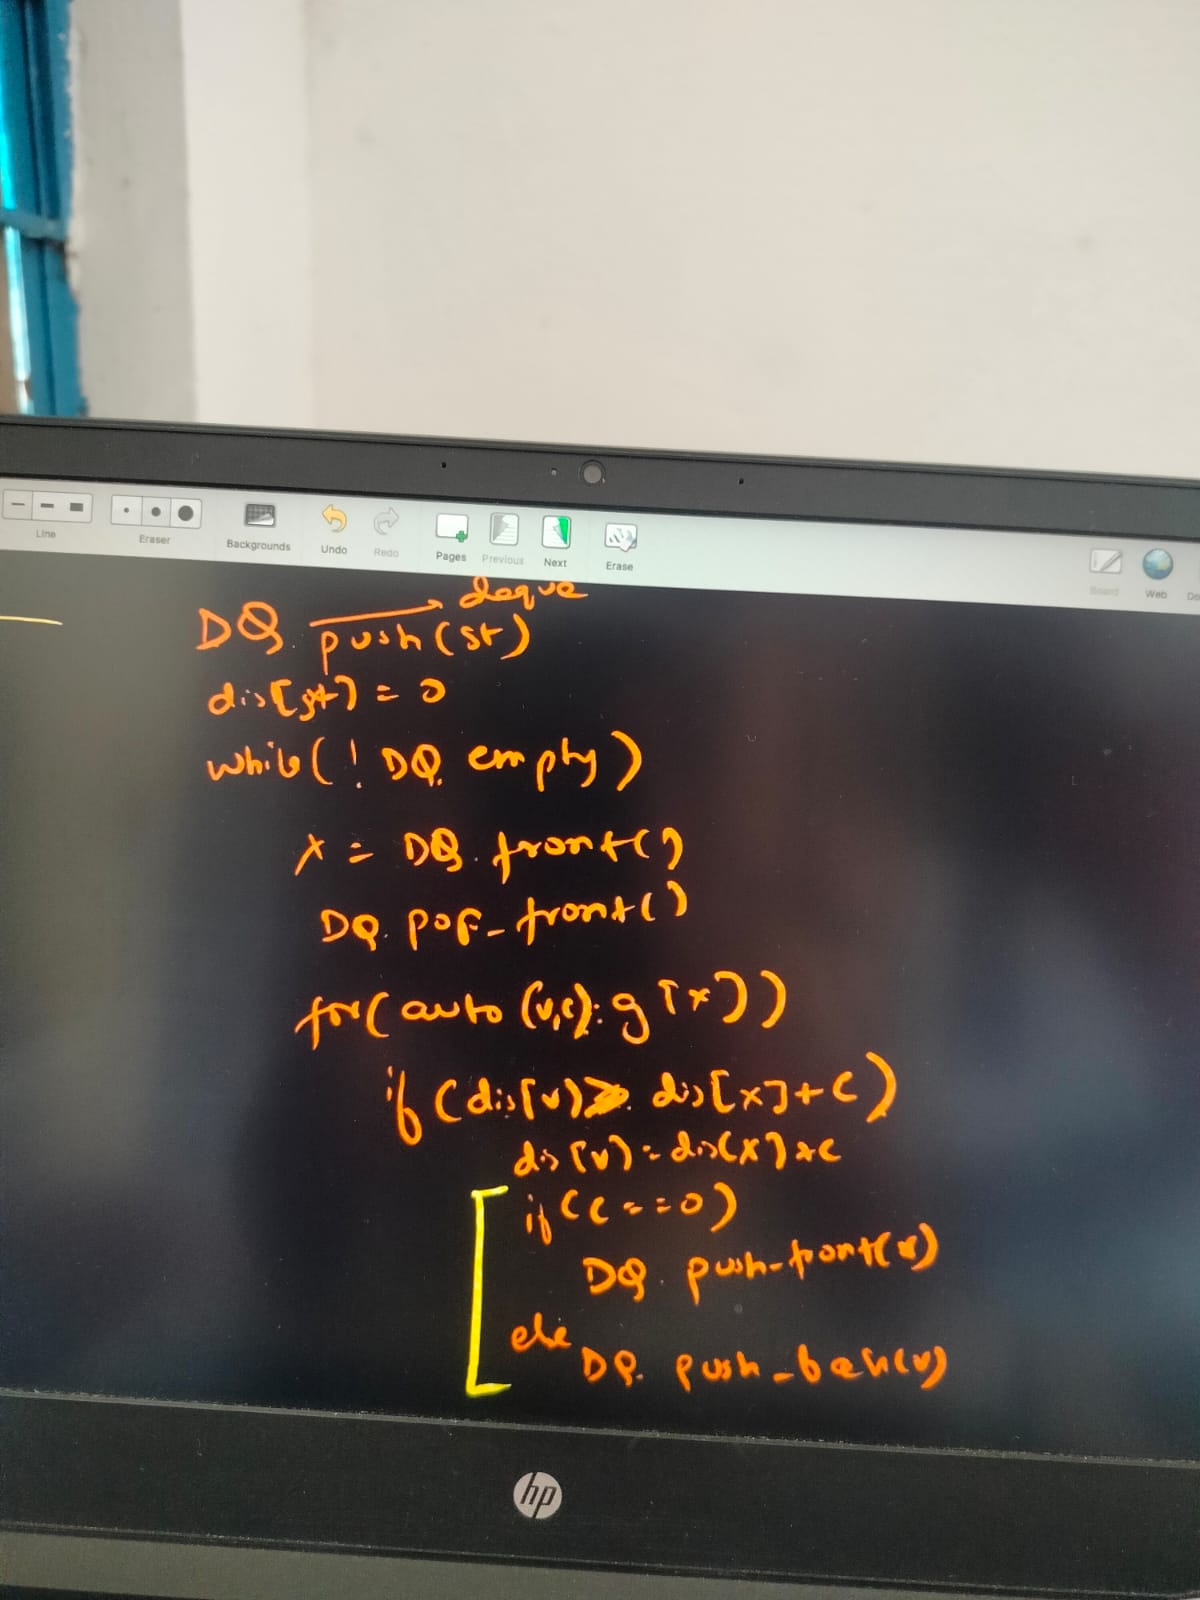 Line Eraser Backgrounds Undo Redo Pages Previous Next Erase Board Web Do
deque
DQ. push(st)
dis[st] = 0
while(! DQ. empty)
x = DQ. front()
DQ. pop_front()
for(auto (v,c): g[x])
if (dis[v]> dis[x]+c)
dis[v]=dis[x]+c
if(c==0)
DQ. push-front(v)
else
DQ. push_back(v)
hp